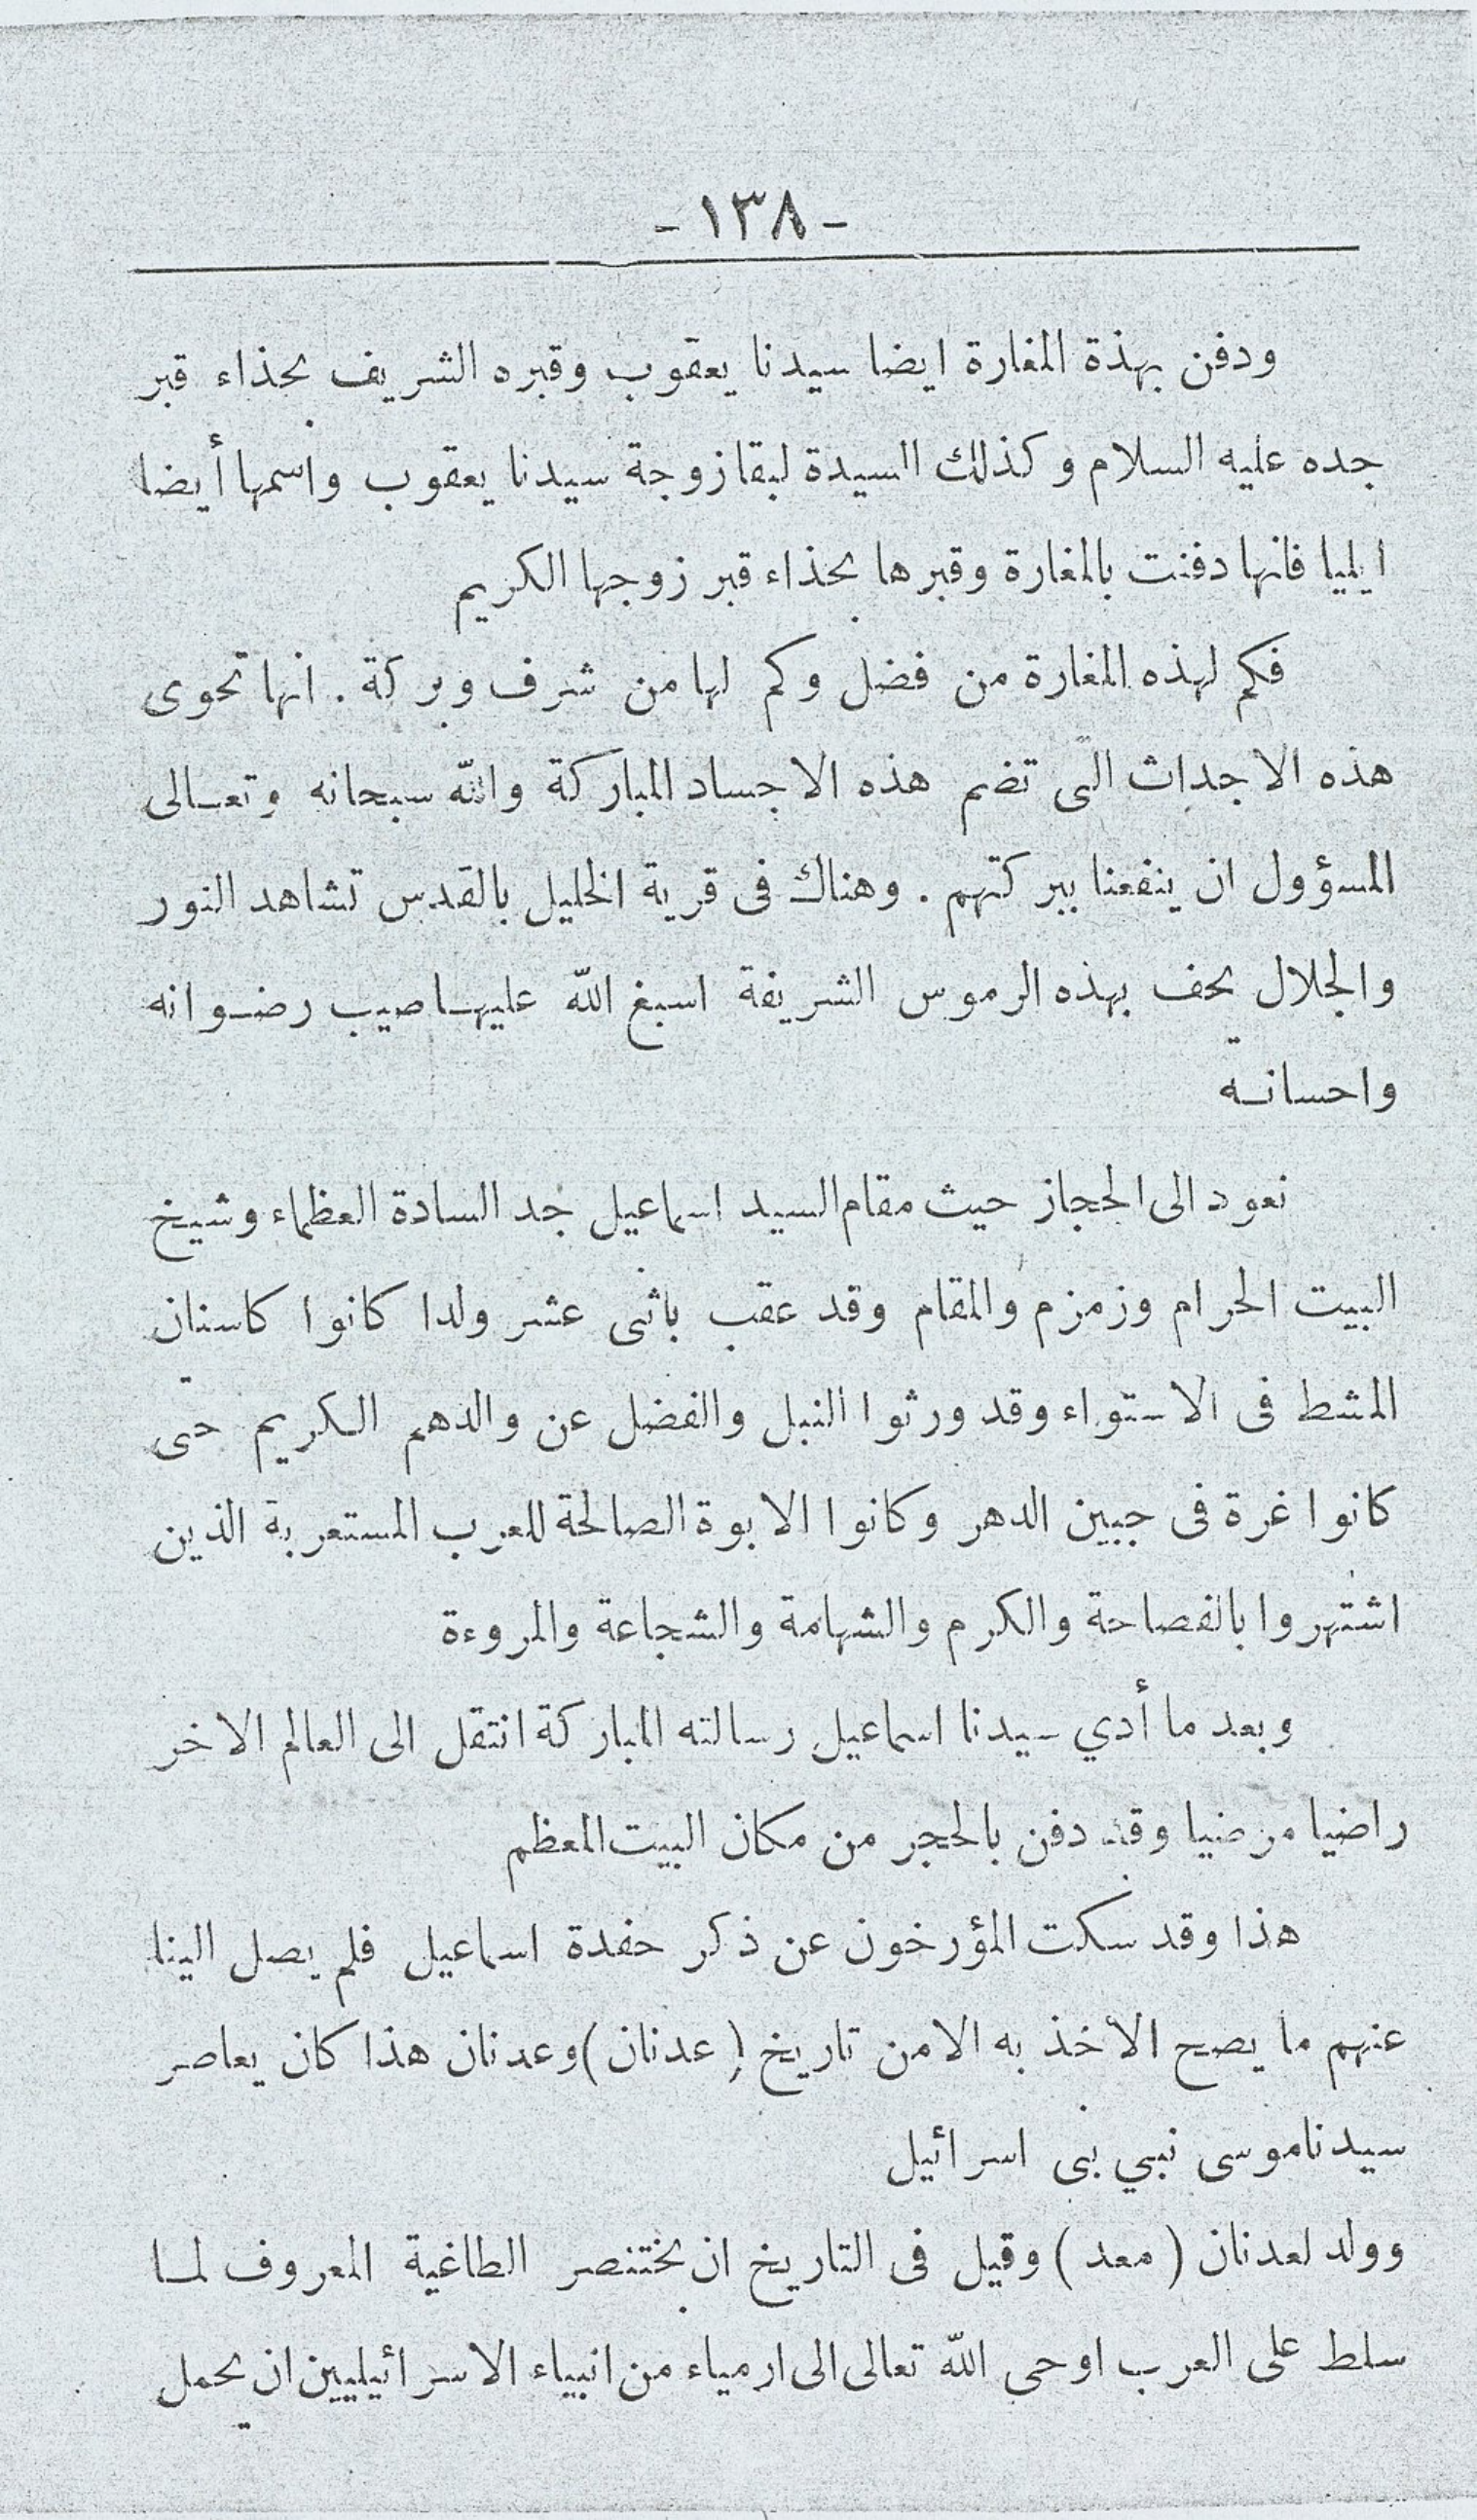 - ١٣٨ -
ودفن بهذة المغارة ايضا سيدنا يعقوب وقبره الشريف بحذاء قبر
جده عليه السلام وكذلك السيدة لبقا زوجة سيدنا يعقوب واسمها أيضا
ايليا فانها دفنت بالمغارة وقبرها بحذاء قبر زوجها الكريم
فكم لهذه المغارة من فضل وكم لها من شرف وبركة . انها تحوى
هذه الاجداث التى تضم هذه الاجساد المباركة والله سبحانه وتعالى
المسؤول ان ينفعنا ببركتهم . وهناك فى قرية الخليل بالقدس تشاهد النور
والجلال يحف بهذه الرموس الشريفة اسبغ الله عليها صيب رضوانه
واحسانه
نعود الى الحجاز حيث مقام السيد اسماعيل جد السادة العظماء وشيخ
البيت الحرام وزمزم والمقام وقد عقب باثنى عشر ولدا كانوا كاسنان
المشط فى الاستواء وقد ورثوا النبل والفضل عن والدهم الكريم حتى
كانوا غرة فى جبين الدهر وكانوا الابوة الصالحة للعرب المستعربة الذين
اشتهروا بالفصاحة والكرم والشهامة والشجاعة والمروءة
وبعد ما أدي سيدنا اسماعيل رسالته المباركة انتقل الى العالم الاخر
راضيا مرضيا وقد دفن بالحجر من مكان البيت المعظم
هذا وقد سكت المؤرخون عن ذكر حفدة اسماعيل فلم يصل الينا
عنهم ما يصح الاخذ به الا من تاريخ (عدنان) وعدنان هذا كان يعاصر
سيدنا موسى نبي بنى اسرائيل
وولد لعدنان (معد) وقيل فى التاريخ ان بختنصر الطاغية المعروف لما
سلط على العرب اوحى الله تعالى الى ارمياء من انبياء الاسرائيليين ان يحمل